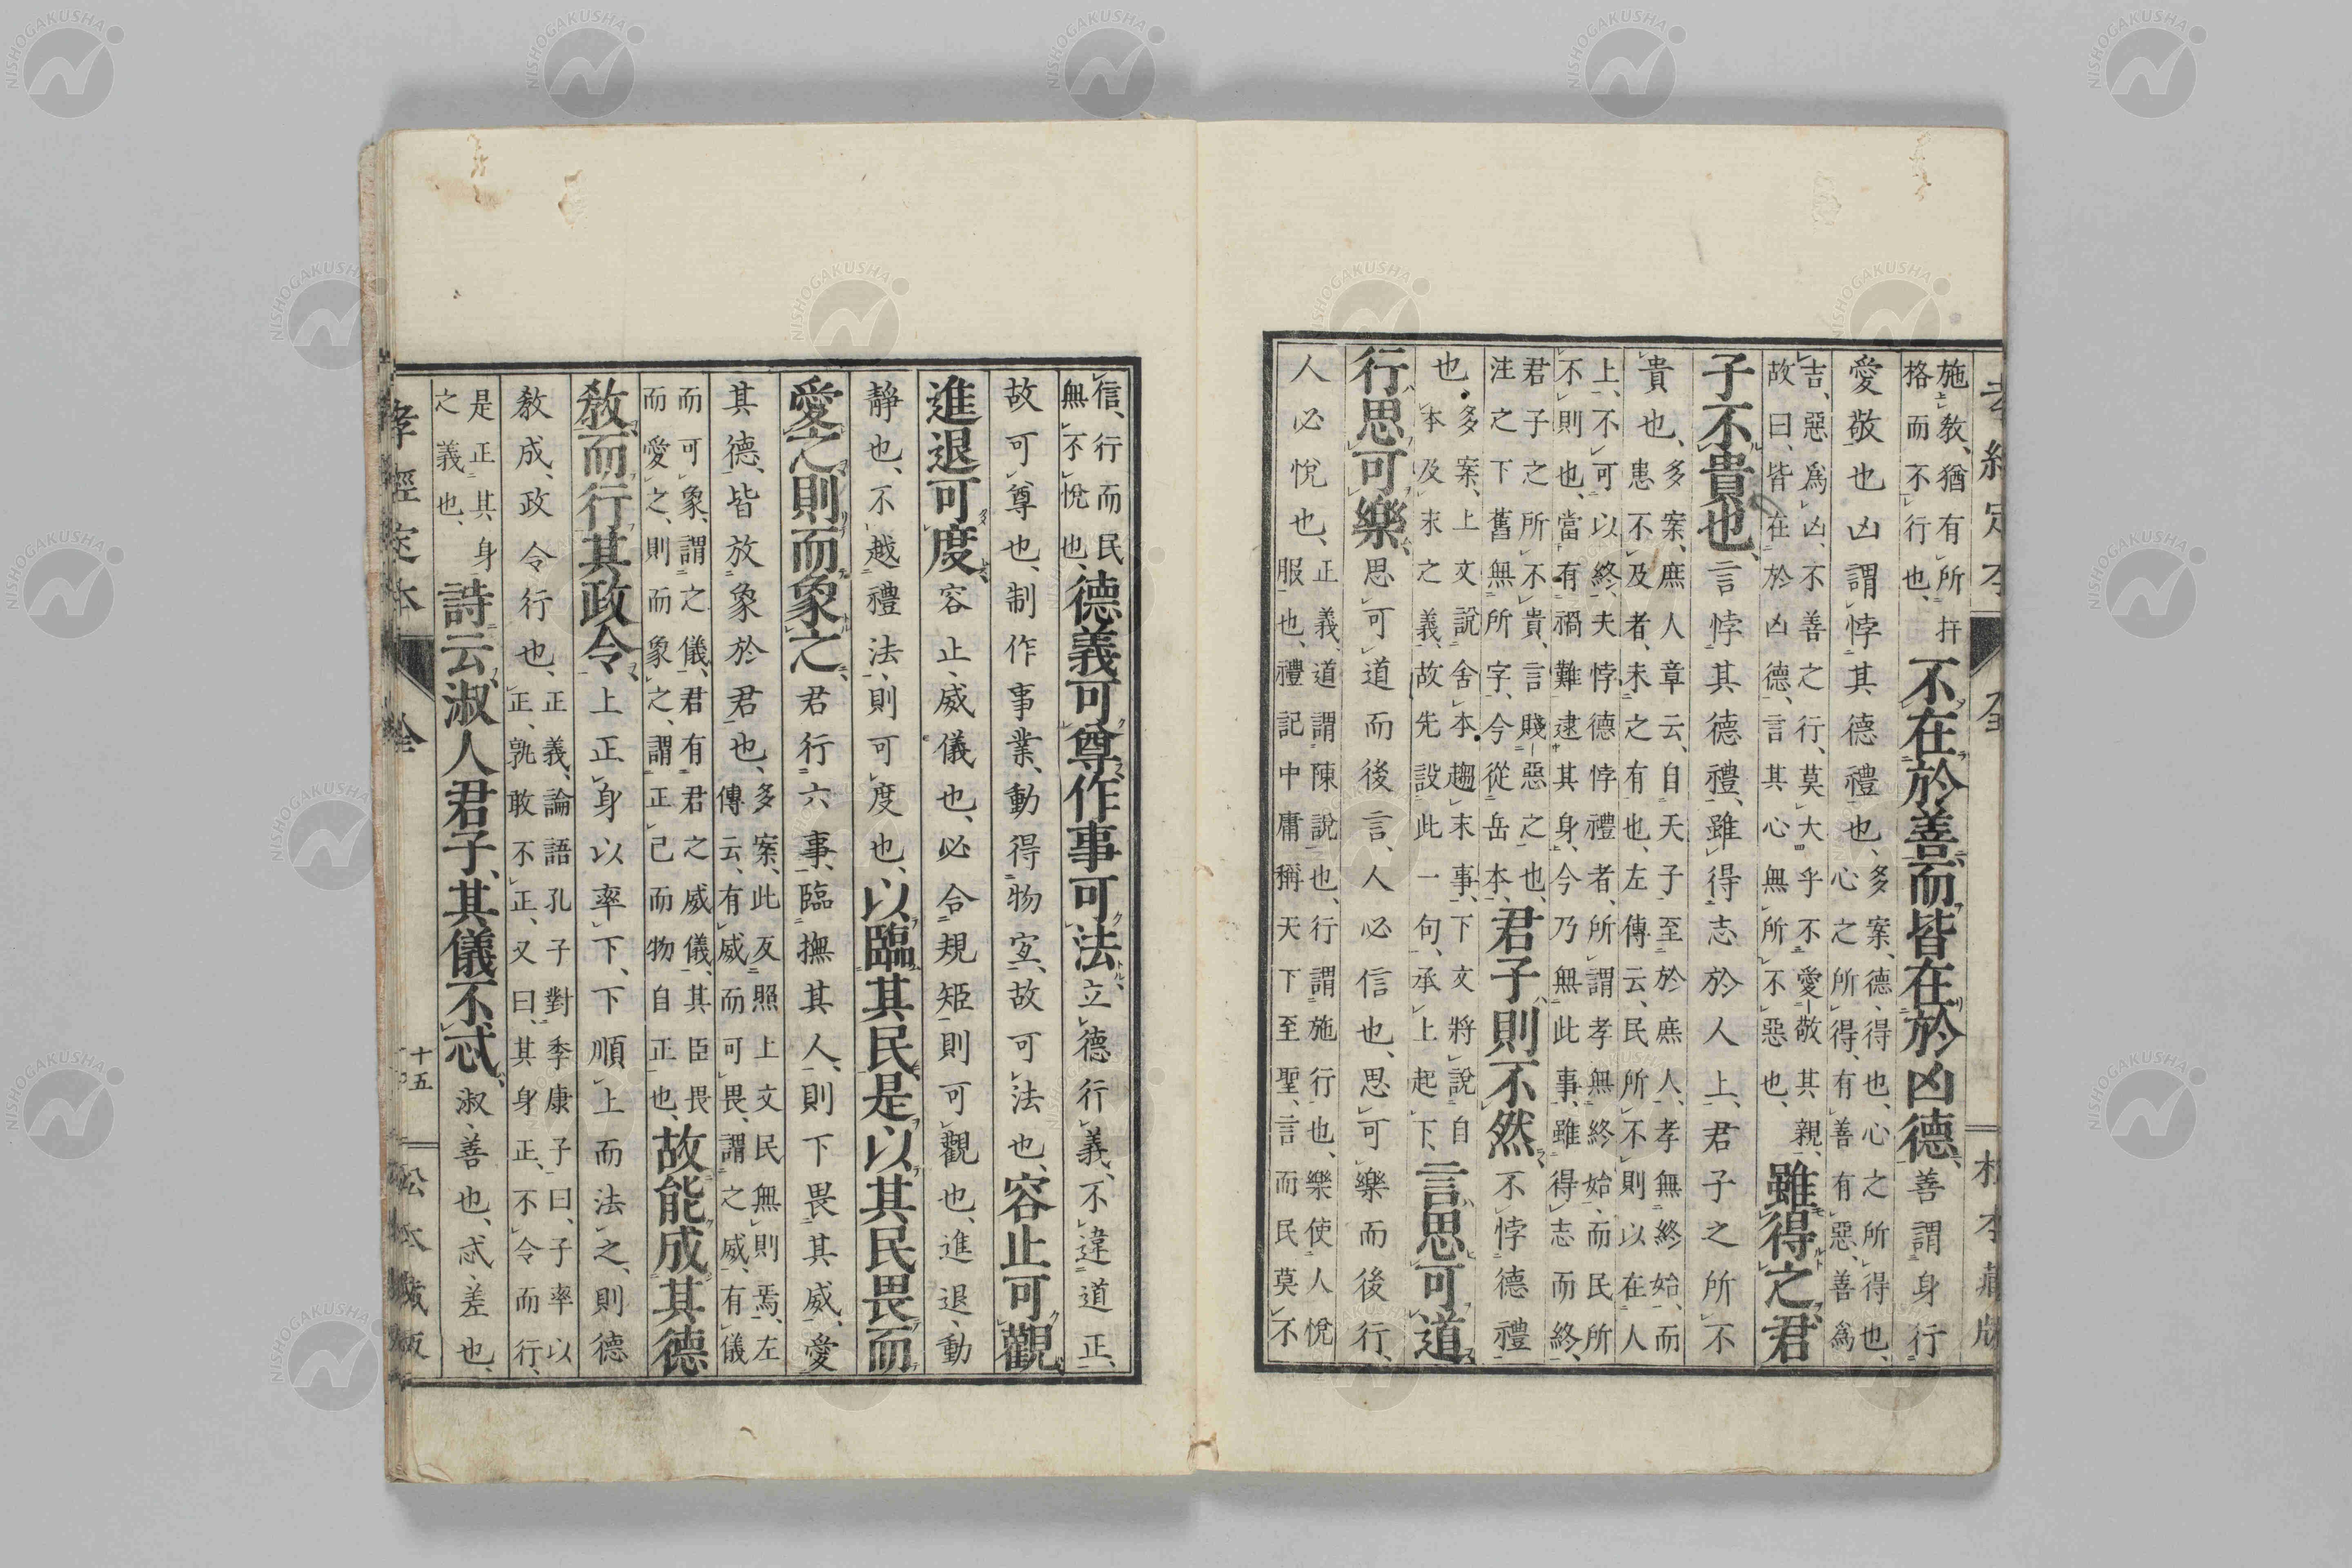 孝經定本 全 松本藏版
施教、猶有所扞
格而不行也、
不在於善而皆在於凶德、善謂身行
愛敬也凶謂悖其德禮也、
多案、德、得也、心之所得也、
心之所得、有善有惡、善爲
吉、惡爲凶、不善之行、莫大乎不愛敬其親、
故曰、皆在於凶德、言其心無所不惡也、
雖得之、君
子不貴也、言悖其德禮、雖得志於人上、君子之所不
貴也、
多案、庶人章云、自天子至於庶人、孝無終始、而
患不及者、未之有也、左傳云、民所不則、以在人
上、不可以終、夫悖德悖禮者、所謂孝無終始、而民所
不則也、當有禍難逮其身、今乃無此事、雖得志而終、
君子之所不貴、言賤惡之也、
注之下舊無所字、今從岳本、
君子則不然、不悖德禮
也、
多案、上文說舍本趨末事、下文將說自
本及末之義、故先設此一句、承上起下、
言思可道
行思可樂思可道而後言、人必信也、思可樂而後行、
人必悅也、
正義、道謂陳說也、行謂施行也、樂使人悅
服也、禮記中庸稱天下至聖、言而民莫不
信、行而民
無不悅也、
德義可尊作事可法、立德行義、不違道正、
故可尊也、制作事業、動得物宜、故可法也、容止可觀、
進退可度、容止、威儀也、必合規矩、則可觀也、進退、動
靜也、不越禮法、則可度也、以臨其民、是以其民畏而
愛之、則而象之、君行六事、臨撫其人、則下畏其威、愛
其德、皆放象於君也、
多案、此反照上文民無則焉、左
傳云、有威而可畏、謂之威、有儀
而可象、謂之儀、君有君之威儀、其臣畏
而愛之、則而象之、謂正己而物自正也、
故能成其德
教、而行其政令、上正身以率下、下順上而法之、則德
教成、政令行也、
正義、論語孔子對季康子曰、子率以
正、孰敢不正、又曰、其身正、不令而行、
是正其身
之義也、
詩云、淑人君子、其儀不忒、淑、善也、忒、差也、
孝經定本 全 十五 松本藏版